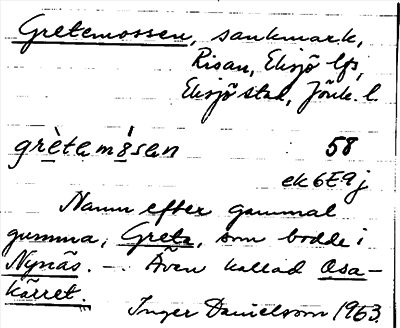 Gretemossen, sankmark,
Risan, Eksjö lfs,
Eksjö stad, Jönk. l.
grètemósen 58
ek 6E9j
Namn efter gammal
gumma, Greta, som bodde i
Nynäs. — Även kallad Osa-
kärret.
Inger Danielsson 1963